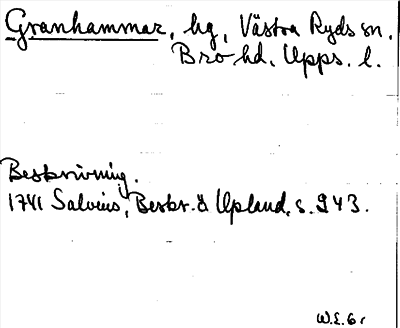 Granhammar, hg, Västra Ryds sn,
Bro hd. Upps. l.
Beskrivning.
1741 Salvius, Beskr. ö Upland, s. 243.
W.E.